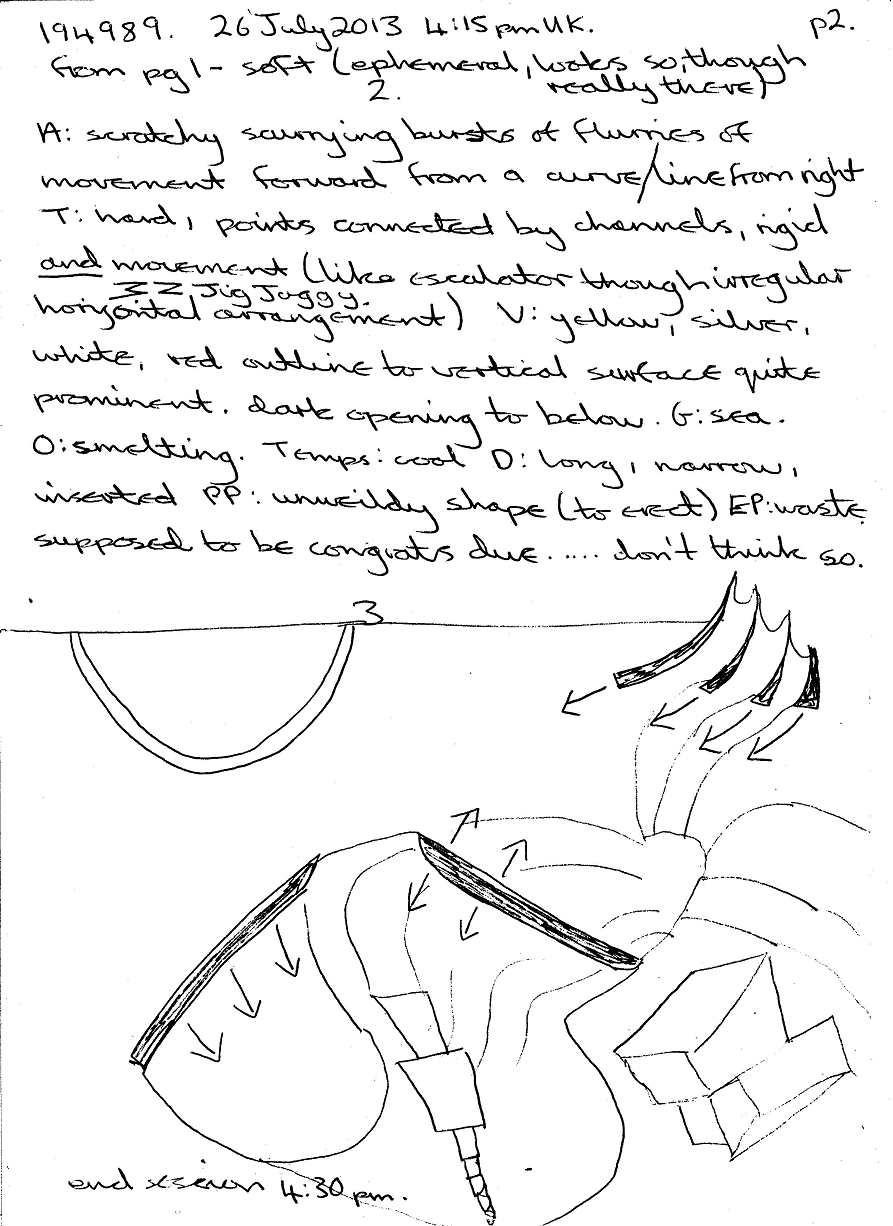 194989. 26 July 2013 4:15pm UK. p2.
from pg1 - soft (ephemeral, looks so, though
really there)
2.
A: scratchy scurrying bursts of flurries of
movement forward from a curve/line from right
T: hard, points connected by channels, rigid
and movement (like escalator though irregular
3 Z Jig Jaggy.
horizontal arrangement) V: yellow, silver,
white, red outline to vertical surface quite
prominent. dark opening to below. G: sea.
O: smelting. Temps: cool D: long, narrow,
inserted PP: unweildy shape (to erect) EP: waste
supposed to be congrats due..... don't think so.
3
end session 4:30 pm.